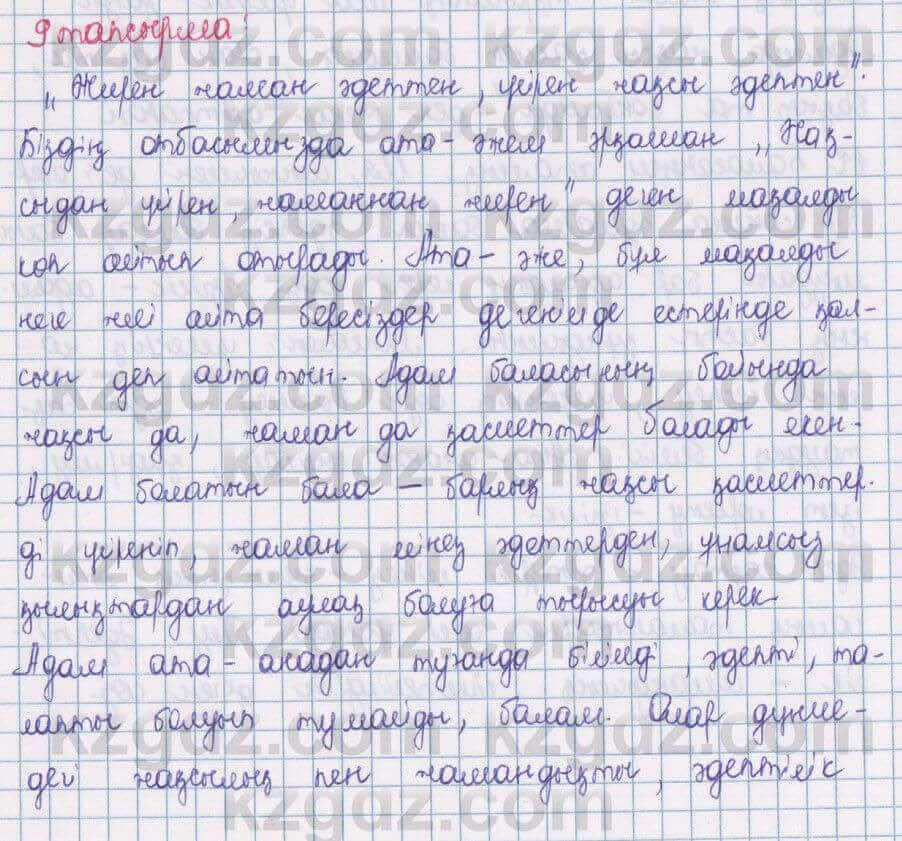 9 тапсырма:
„Жирен жаман әдеттен, үйрен жақсы әдептен".
Біздің отбасымызда ата-әжем әрқашан „Жақ-
сыдан үйрен, жаманнан жирен" деген мақалды
көп айтып отырады. Ата-әже, бұл мақалды
неге жиі айта бересіздер дегенімде естерінде қал-
сын деп айтатын. Адам баласының бойында
жақсы да, жаман да қасиеттер болады екен.
Адам болатын бала – барлық жақсы қасиеттер-
ді үйреніп, жаман мінез әдеттерден, ұнамсыз
қылықтардан аулақ болуға тырысуы керек.
Адам ата-анадан туғанда білімді, әдепті, та-
лапты болуып тумайды, балам. Олар дүние-
дегі жақсылық пен жамандықты, әдептілік
kzgdz.com